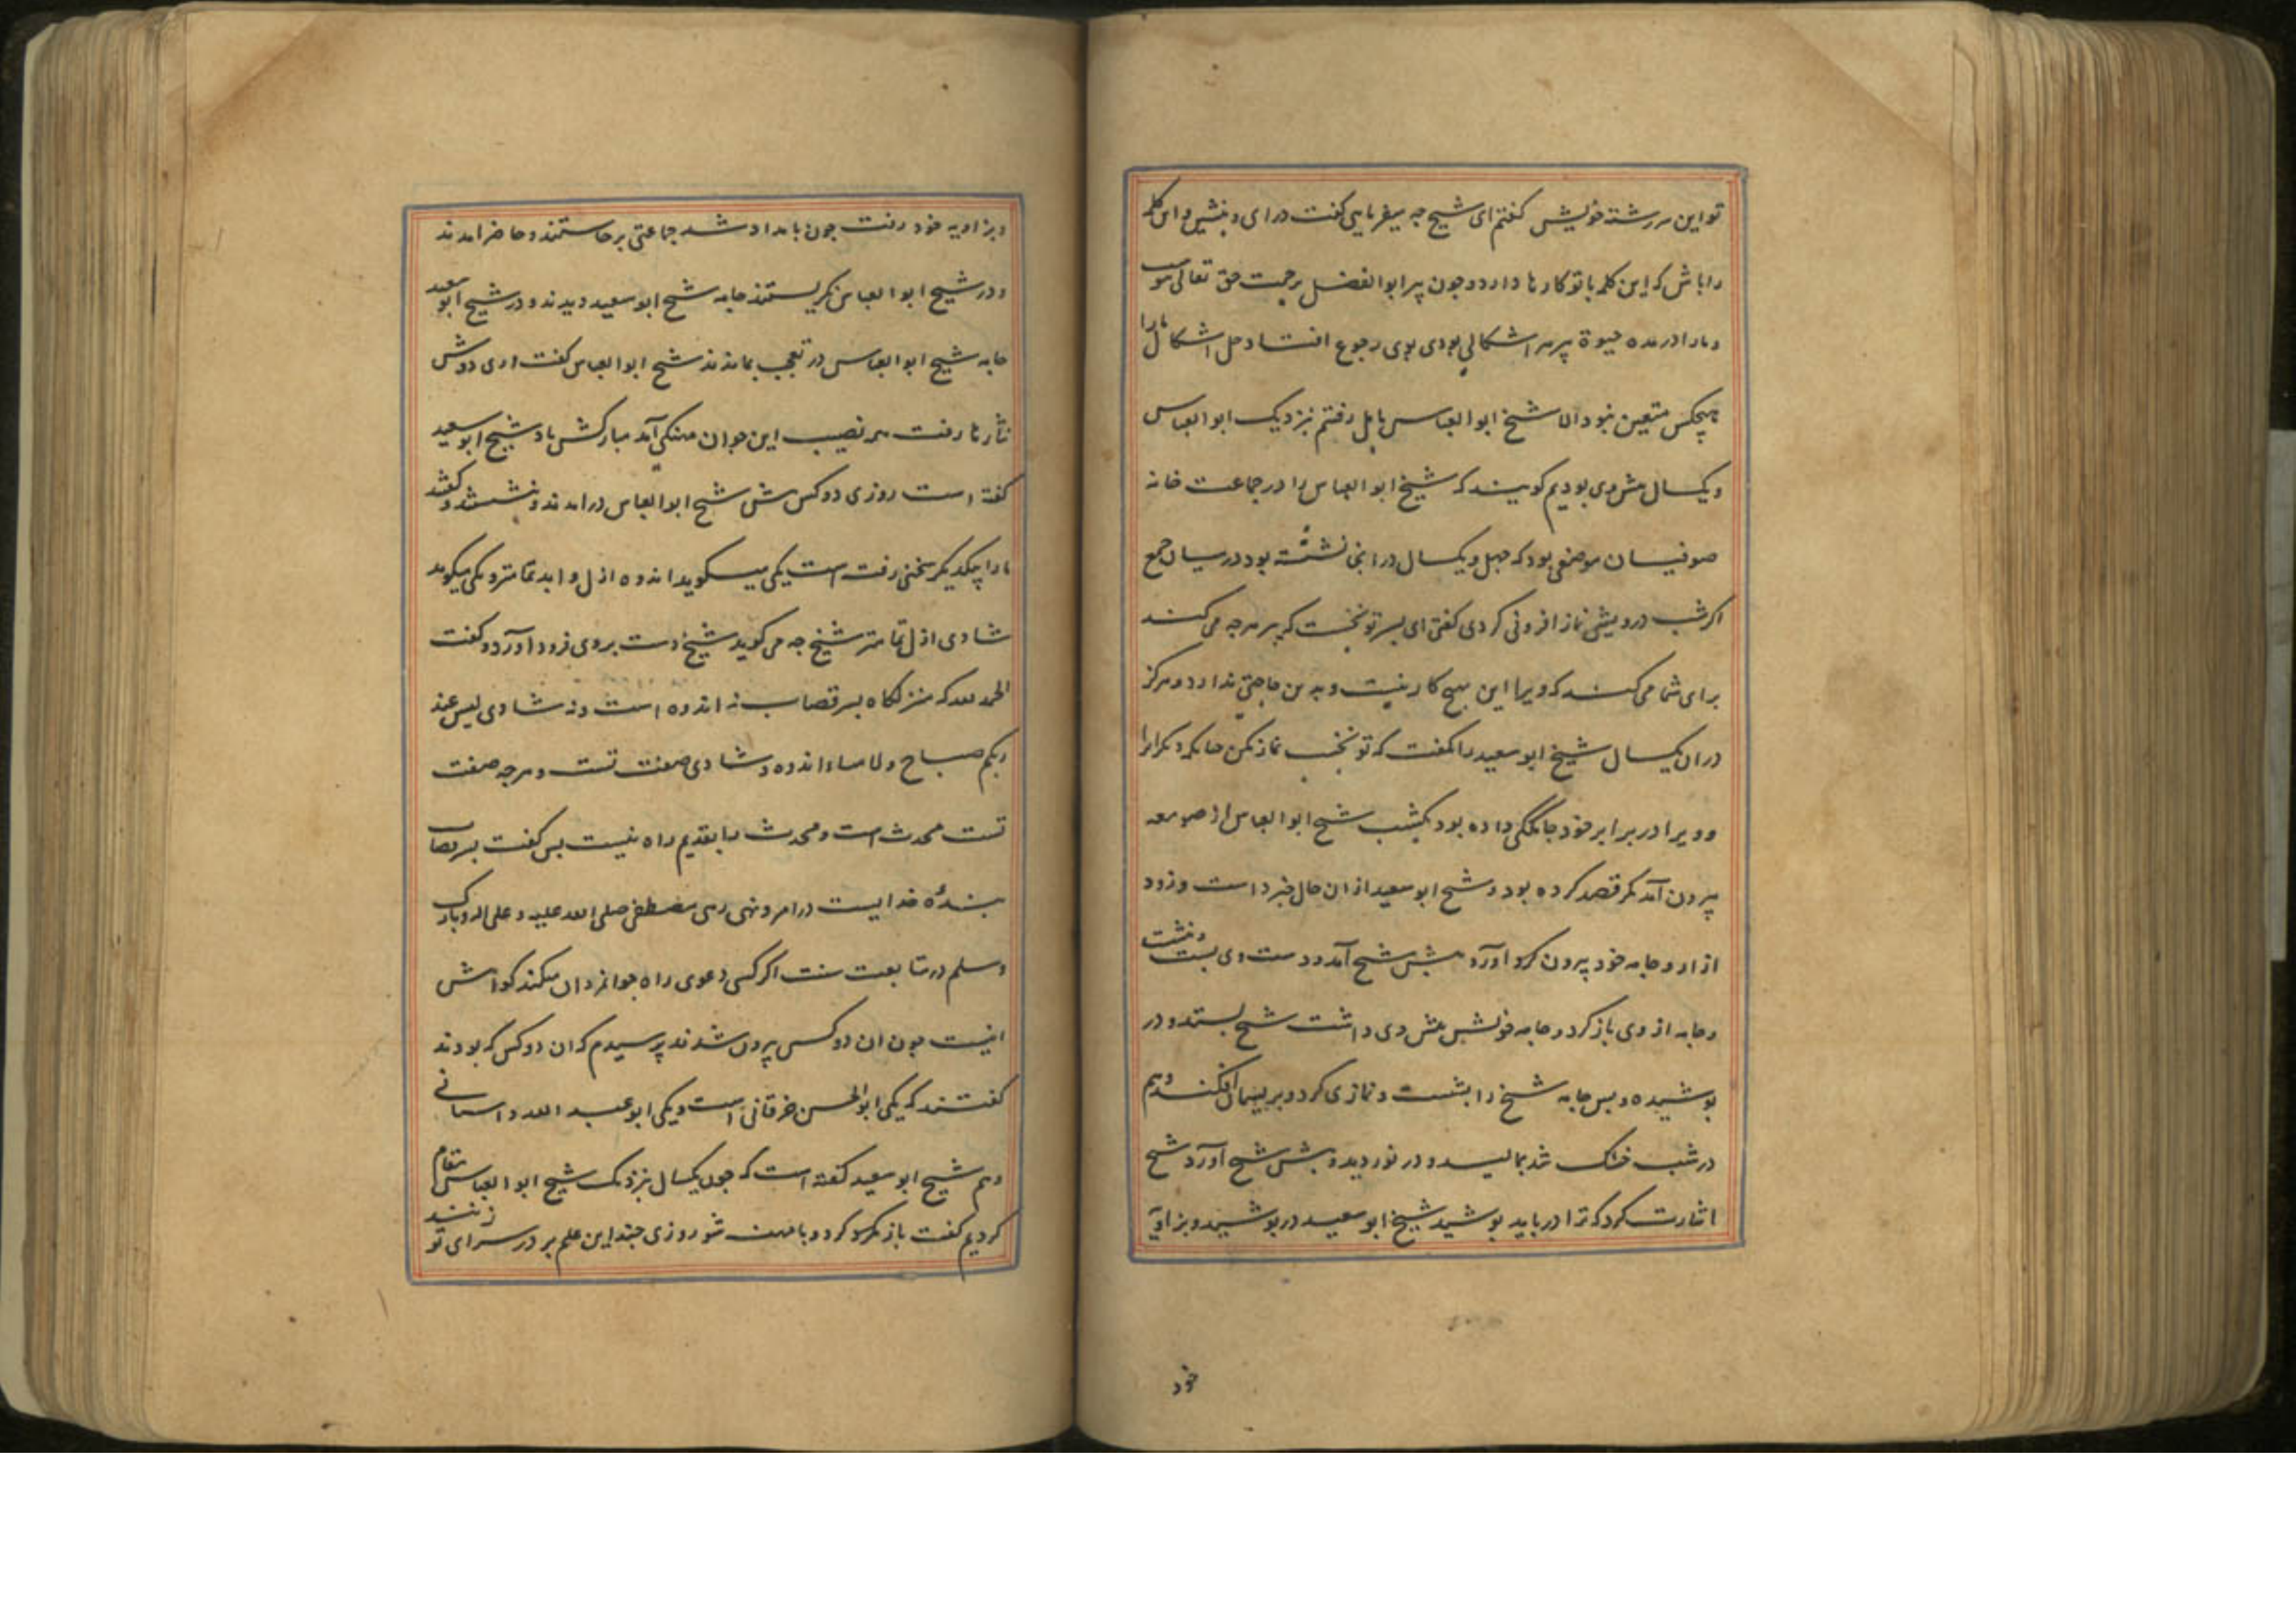 تو این سر رشته خویش گفتم ای شیخ چه میفرمایی گفت درای و بنشین و این کلمه
را باش که این کلمه با تو کارها دارد و چون پیر ابوالفضل برحمت حق تعالی پیوست
و ما را در مدة حیوة پیر هر اشکالی بودی بوی رجوع افتاد و حل اشکال ما را
هیچکس متعین نبود الا شیخ ابوالعباس بامل رفتم نزدیک ابوالعباس
و یکسال پیش وی بودیم گویند که شیخ ابوالعباس را در جماعت خانه
صوفیان موضعی بود که چهل و یکسال در انجا نشسته بود در میان جمع
اگر شب درویشی نماز افزونی کردی گفتی ای پسر تو بخسب که پیر هر چه می کند
برای شما می کند که ویرا این هیچ کار نیست و بدین حاجتی ندارد و هرگز
در ان یکسال شیخ ابوسعید را نگفت که تو بخسب نماز مکن چنانکه دیگرانرا
و ویرا در برابر خود جایگکی داده بود یکشب شیخ ابوالعباس از صومعه
بیرون آمد مگر فصد کرده بود و شیخ ابوسعید از ان حال خبر داشت و زود
از او و جامه خود بیرون کرد آورد پیش شیخ آمد و دست وی بشست و ببست
و جامه از وی باز کرد و جامه خویش پیش وی داشت شیخ بستد و در
پوشیده و پس جامه شیخ را بشست و نمازی کرد و بریسمان افکند و هم
در شب خشک شد بمالید و در نوردید و پیش شیخ آورد شیخ
اشارت کرد که ترا در باید پوشید شیخ ابوسعید در پوشید و بزاویه
خود
و بزاویه خود رفت چون بامداد شد جماعتی برخاستند و حاضر امدند
و در شیخ ابوالعباس نگریستند جامه شیخ ابوسعید دیدند و در شیخ ابوسعید
جامه شیخ ابوالعباس در تعجب بماندند شیخ ابوالعباس گفت اری دوش
نثارها رفت همه نصیب این جوان مهنکی آمد مبارکش باد شیخ ابوسعید
گفته است روزی دو کس پیش شیخ ابوالعباس درامدند و بنشستند و گفتند
ما را با یکدیگر سخنی رفته است یکی میگوید اندوه ازل و ابد تمامتر و یکی میگوید
شادی ازل تمامتر شیخ چه می گوید شیخ دست بروی فرود آورد و گفت
الحمد لله که منزلگاه پسر قصاب نه اندوه است و نه شادی لیس عند
ربکم صباح ولا مساء اندوه و شادی صفت تست و هر چه صفت
تست محدث است و محدث را بقدیم راه نیست پس گفت پسر قصاب
بندهٔ خدایست در امر و نهی رهی مصطفی صلی الله علیه و علی اله و بارک
و سلم در متابعت سنت اگر کسی دعوی راه جوانمردان میکند گواهش
اینست چون ان دو کس بیرون شدند پرسیدم که ان دو کس که بودند
گفتند که یکی ابوالحسن خرقانی است و یکی ابوعبد الله داستانی
و هم شیخ ابوسعید گفته است که چون یکسال نزدیک شیخ ابوالعباس مقام
کردیم گفت باز گرد و با میهنه شو روزی چند این علم بر در سرای تو زنند